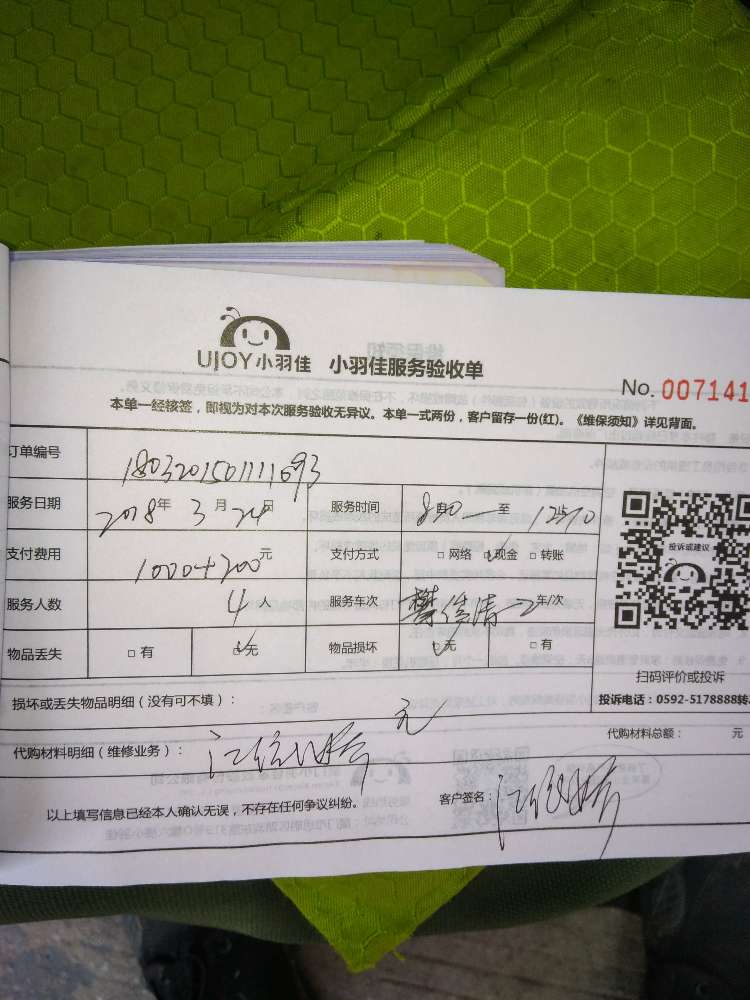 UJOY小羽佳 小羽佳服务验收单
No. 007141
本单一经接签，即视为对本次服务验收无异议。本单一式两份，客户留存一份(红)。《维保须知》详见背面。
订单编号 1803201501111693
服务日期 2018年 3月 24日 服务时间 至
支付费用 1000+200元 支付方式 □ 网络 ☑ 现金 □ 转账
投诉或建议
服务人数 4人 服务车次 2车/次
物品丢失 □ 有 ☑ 无 物品损坏 ☑ 无 □ 有
扫码评价或投诉
损坏或丢失物品明细（没有可不填）： 无
投诉电话：0592-5178888转
代购材料明细（维修业务）： 代购材料总额： 元
以上填写信息已经本人确认无误，不存在任何争议纠纷。 客户签名：